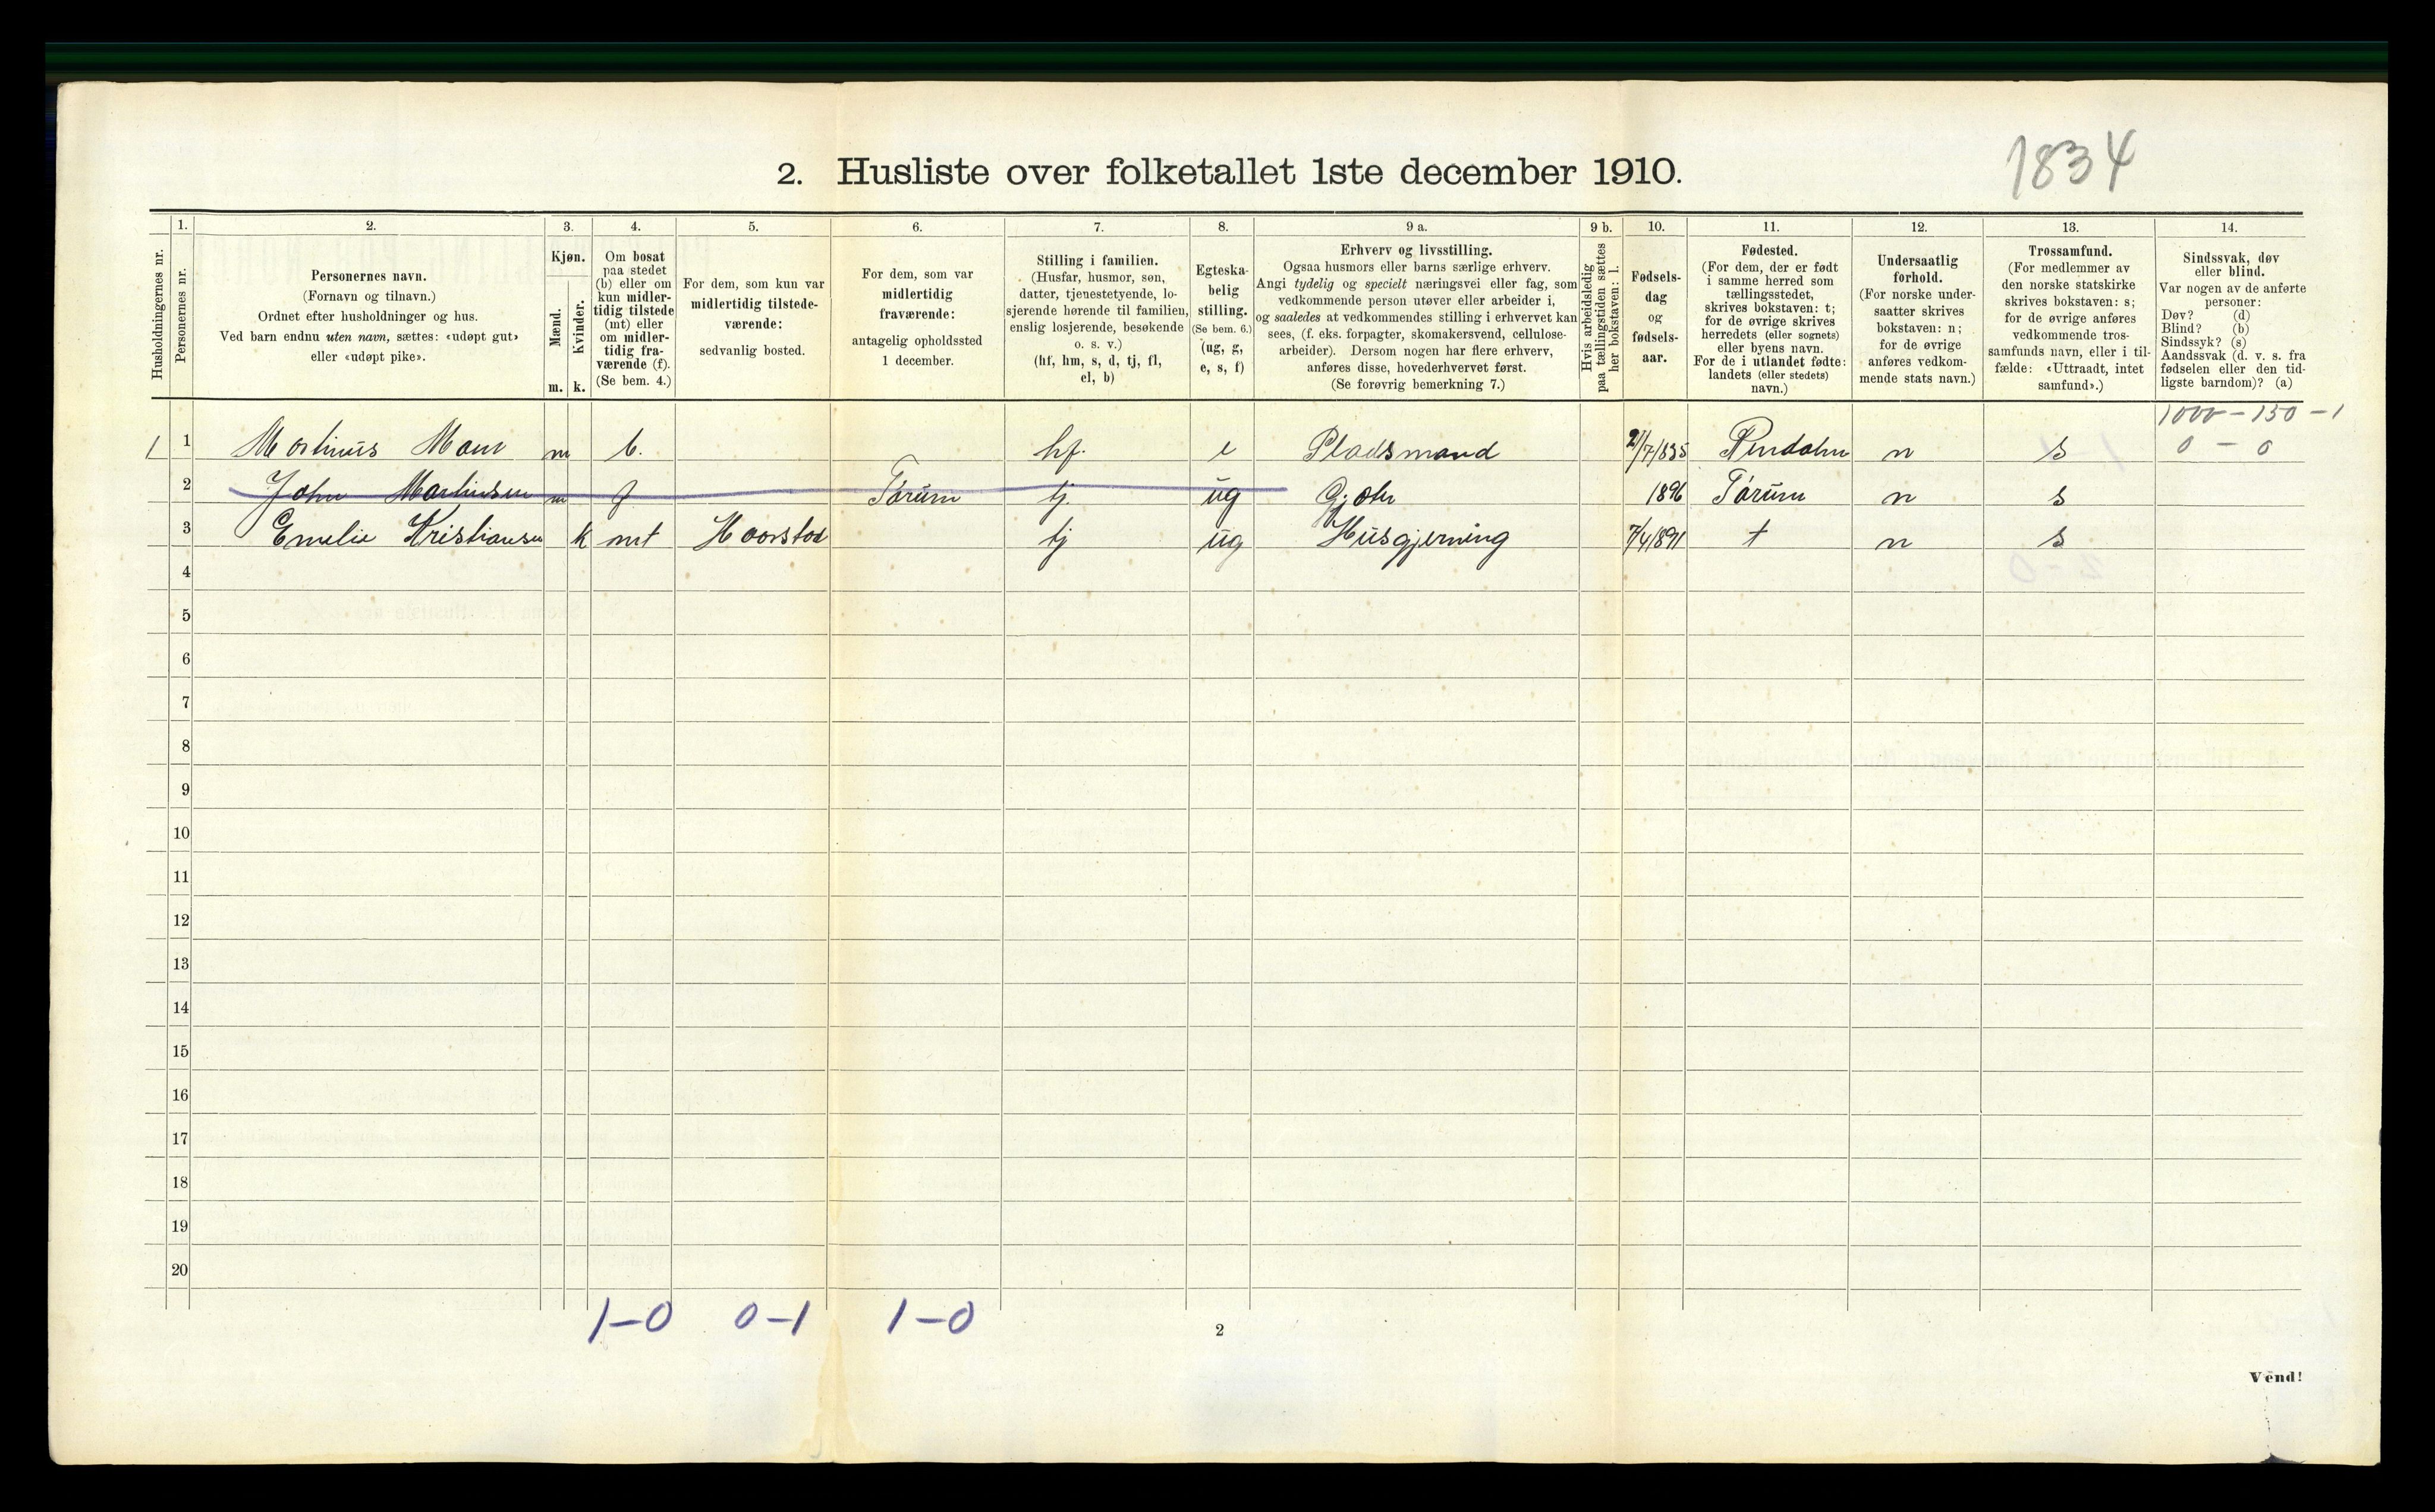 1834
2. Husliste over folketallet 1ste december 1910.
Husholdningernes nr.
1. Personernes nr.
2. Personernes navn.
(Fornavn og tilnavn.)
Ordnet efter husholdninger og hus.
Ved barn endnu uten navn, sættes: «udøpt gut»
eller «udøpt pike».
3. Kjøn.
Mænd. m.
Kvinder. k.
4. Om bosat
paa stedet
(b) eller om
kun midler-
tidig tilstede
(mt) eller
om midler-
tidig fra-
værende (f).
(Se bem. 4.)
5. For dem, som kun var
midlertidig tilstede-
værende:
sedvanlig bosted.
6. For dem, som var
midlertidig
fraværende:
antagelig opholdssted
1 december.
7. Stilling i familien.
(Husfar, husmor, søn,
datter, tjenestetyende, lo-
sjerende hørende til familien,
enslig losjerende, besøkende
o. s. v.)
(hf, hm, s, d, tj, fl,
el, b)
8. Egteska-
belig
stilling.
(Se bem. 6.)
(ug, g,
e, s, f)
9 a. Erhverv og livsstilling.
Ogsaa husmors eller barns særlige erhverv.
Angi tydelig og specielt næringsvei eller fag, som
vedkommende person utøver eller arbeider i,
og saaledes at vedkommendes stilling i erhvervet kan
sees, (f. eks. forpagter, skomakersvend, cellulose-
arbeider). Dersom nogen har flere erhverv,
anføres disse, hovederhvervet først.
(Se forøvrig bemerkning 7.)
9 b. Hvis arbeidsledig
paa tællingstiden sættes
her bokstaven: l.
10. Fødsels-
dag
og
fødsels-
aar.
11. Fødested.
(For dem, der er født
i samme herred som
tællingsstedet,
skrives bokstaven: t;
for de øvrige skrives
herredets (eller sognets)
eller byens navn.
For de i utlandet fødte:
landets (eller stedets)
navn.)
12. Undersaatlig
forhold.
(For norske under-
saatter skrives
bokstaven: n;
for de øvrige
anføres vedkom-
mende stats navn.)
13. Trossamfund.
(For medlemmer av
den norske statskirke
skrives bokstaven: s;
for de øvrige anføres
vedkommende tros-
samfunds navn, eller i til-
fælde: «Uttraadt, intet
samfund».)
14. Sindssvak, døv
eller blind.
Var nogen av de anførte
personer:
Døv? (d)
Blind? (b)
Sindssyk? (s)
Aandssvak (d. v. s. fra
fødselen eller den tid-
ligste barndom)? (a)
1000 - 150 - 1
1 1 Martinus m b. hf. e Pladsmand 21/7/835 n s 0 - 0
2 John Martinsen m f Tørum tj. ug Gjæter 1896 Tørum n s
3 Emelie Kristiansen k mt Haarstad tj ug Husgjerning 7/4/891 t n s
4
5
6
7
8
9
10
11
12
13
14
15
16
17
18
19
20
1-0 0-1 1-0
2
Vend!